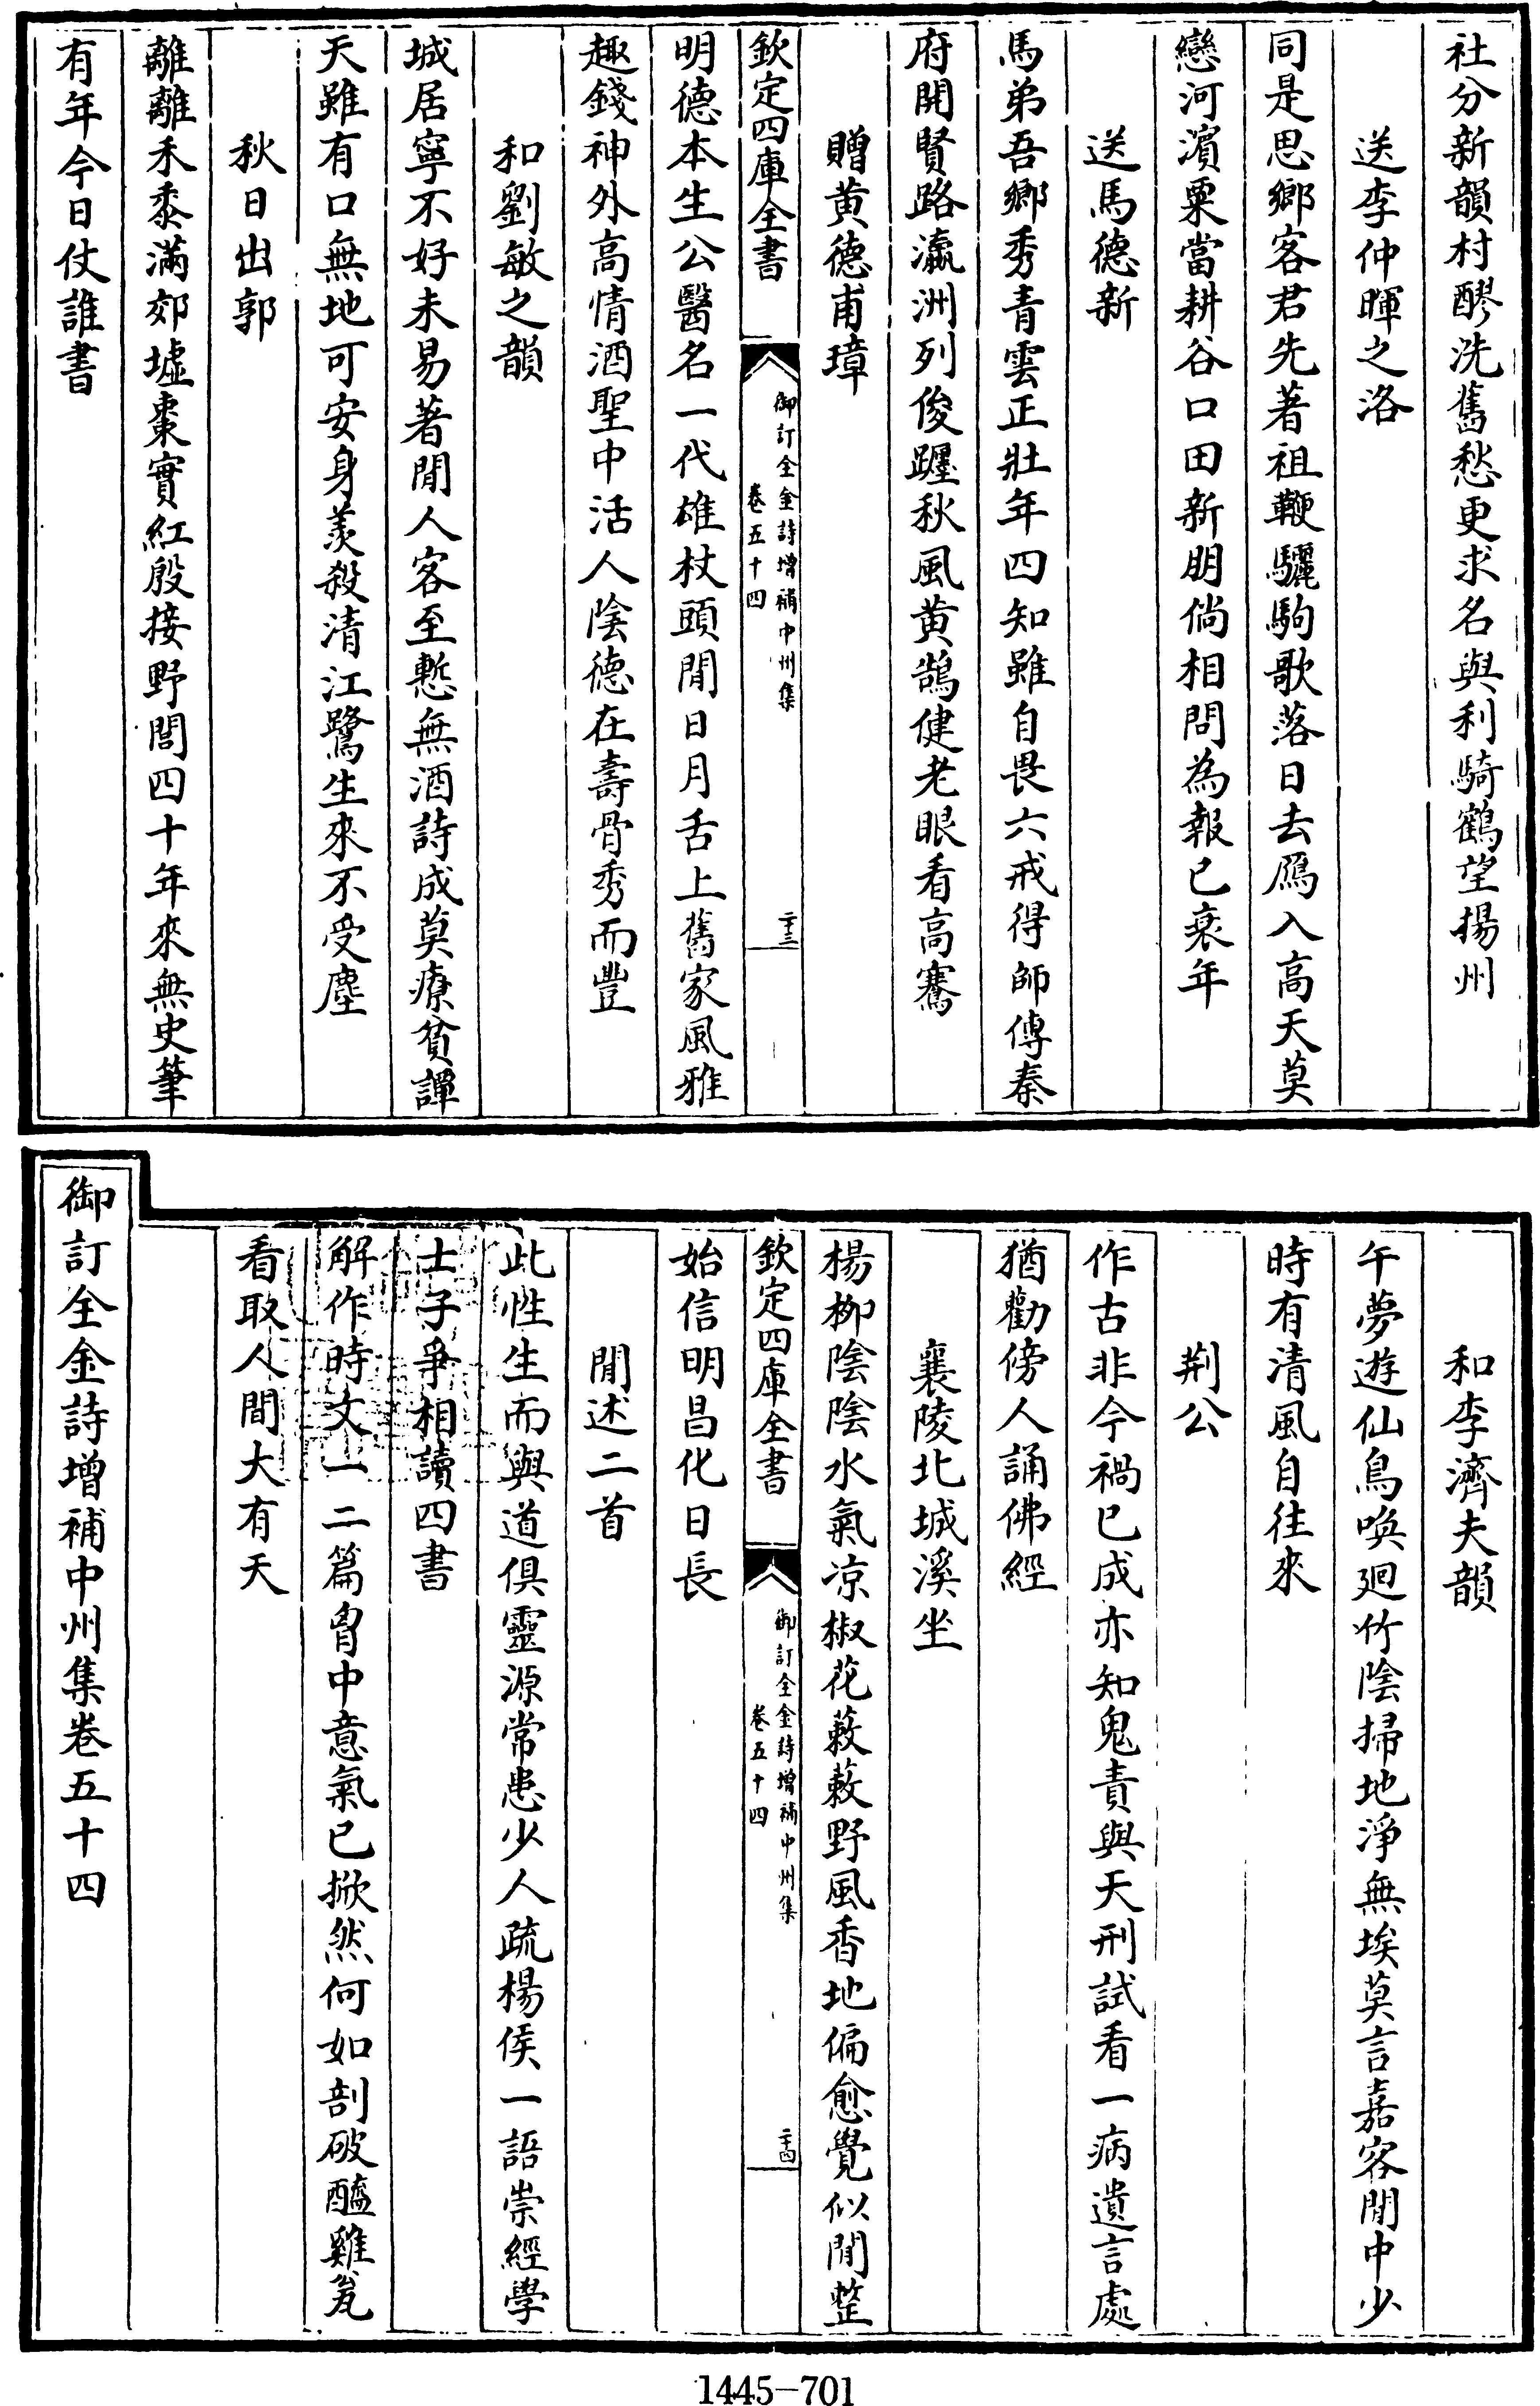 社分新韻村醪洗舊愁更求名與利騎鶴望揚州
送李仲暉之洛
同是思鄉客君先著祖鞭驪駒歌落日去鴈入高天莫
戀河濱粟當耕谷口田新朋倘相問為報已衰年
送馬德新
馬弟吾鄉秀青雲正壯年四知雖自畏六戒得師傳秦
府開賢路瀛洲列俊躔秋風黃鵠健老眼看高騫
贈黃德甫璋
欽定四庫全書
御訂全金詩增補中州集
卷五十四
二十三
明德本生公醫名一代雄杖頭閒日月舌上舊家風雅
趣錢神外高情酒聖中活人陰德在壽骨秀而豐
和劉敏之韻
城居寧不好未易著閒人客至慙無酒詩成莫療貧譚
天雖有口無地可安身羨殺清江鷺生來不受塵
秋日出郭
離離禾黍滿郊墟棗實紅殷接野閭四十年來無史筆
有年今日仗誰書
和李濟夫韻
午夢遊仙鳥喚廻竹陰掃地淨無埃莫言嘉客閒中少
時有清風自往來
荆公
作古非今禍已成亦知鬼責與天刑試看一病遺言處
猶勸傍人誦佛經
襄陵北城溪坐
楊柳陰陰水氣凉椒花蔌蔌野風香地偏愈覺似閒整
欽定四庫全書
御訂全金詩增補中州集
卷五十四
二十四
始信明昌化日長
閒述二首
此性生而與道俱靈源常患少人疏楊侯一語崇經學
士子爭相讀四書
解作時文一二篇胷中意氣已掀然何如剖破醯雞瓮
看取人間大有天
御訂全金詩增補中州集卷五十四
1445-701